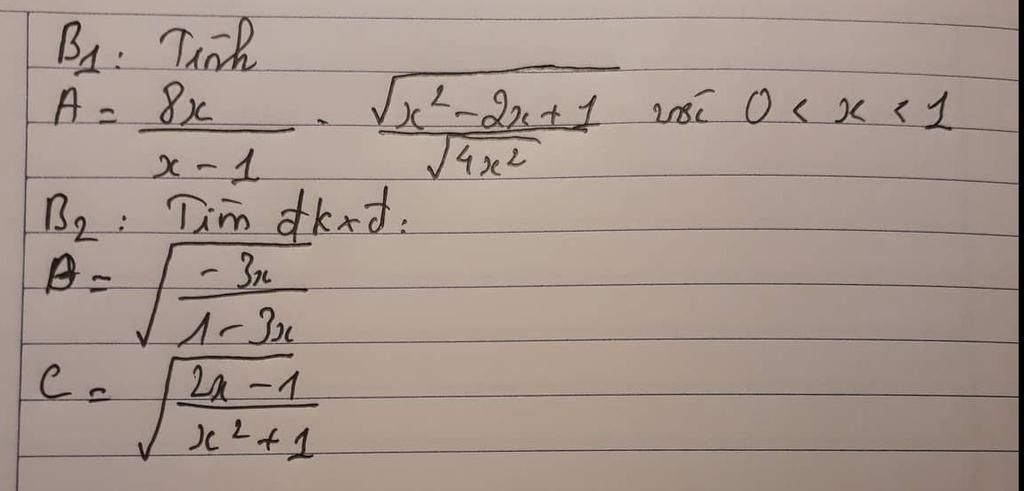 B1: Tính
A = 8x / x - 1 . √x² - 2x + 1 / √4x² với 0 < x < 1
B2: Tìm đkxđ:
B = √-3x / 1 - 3x
C = √2x - 1 / x² + 1